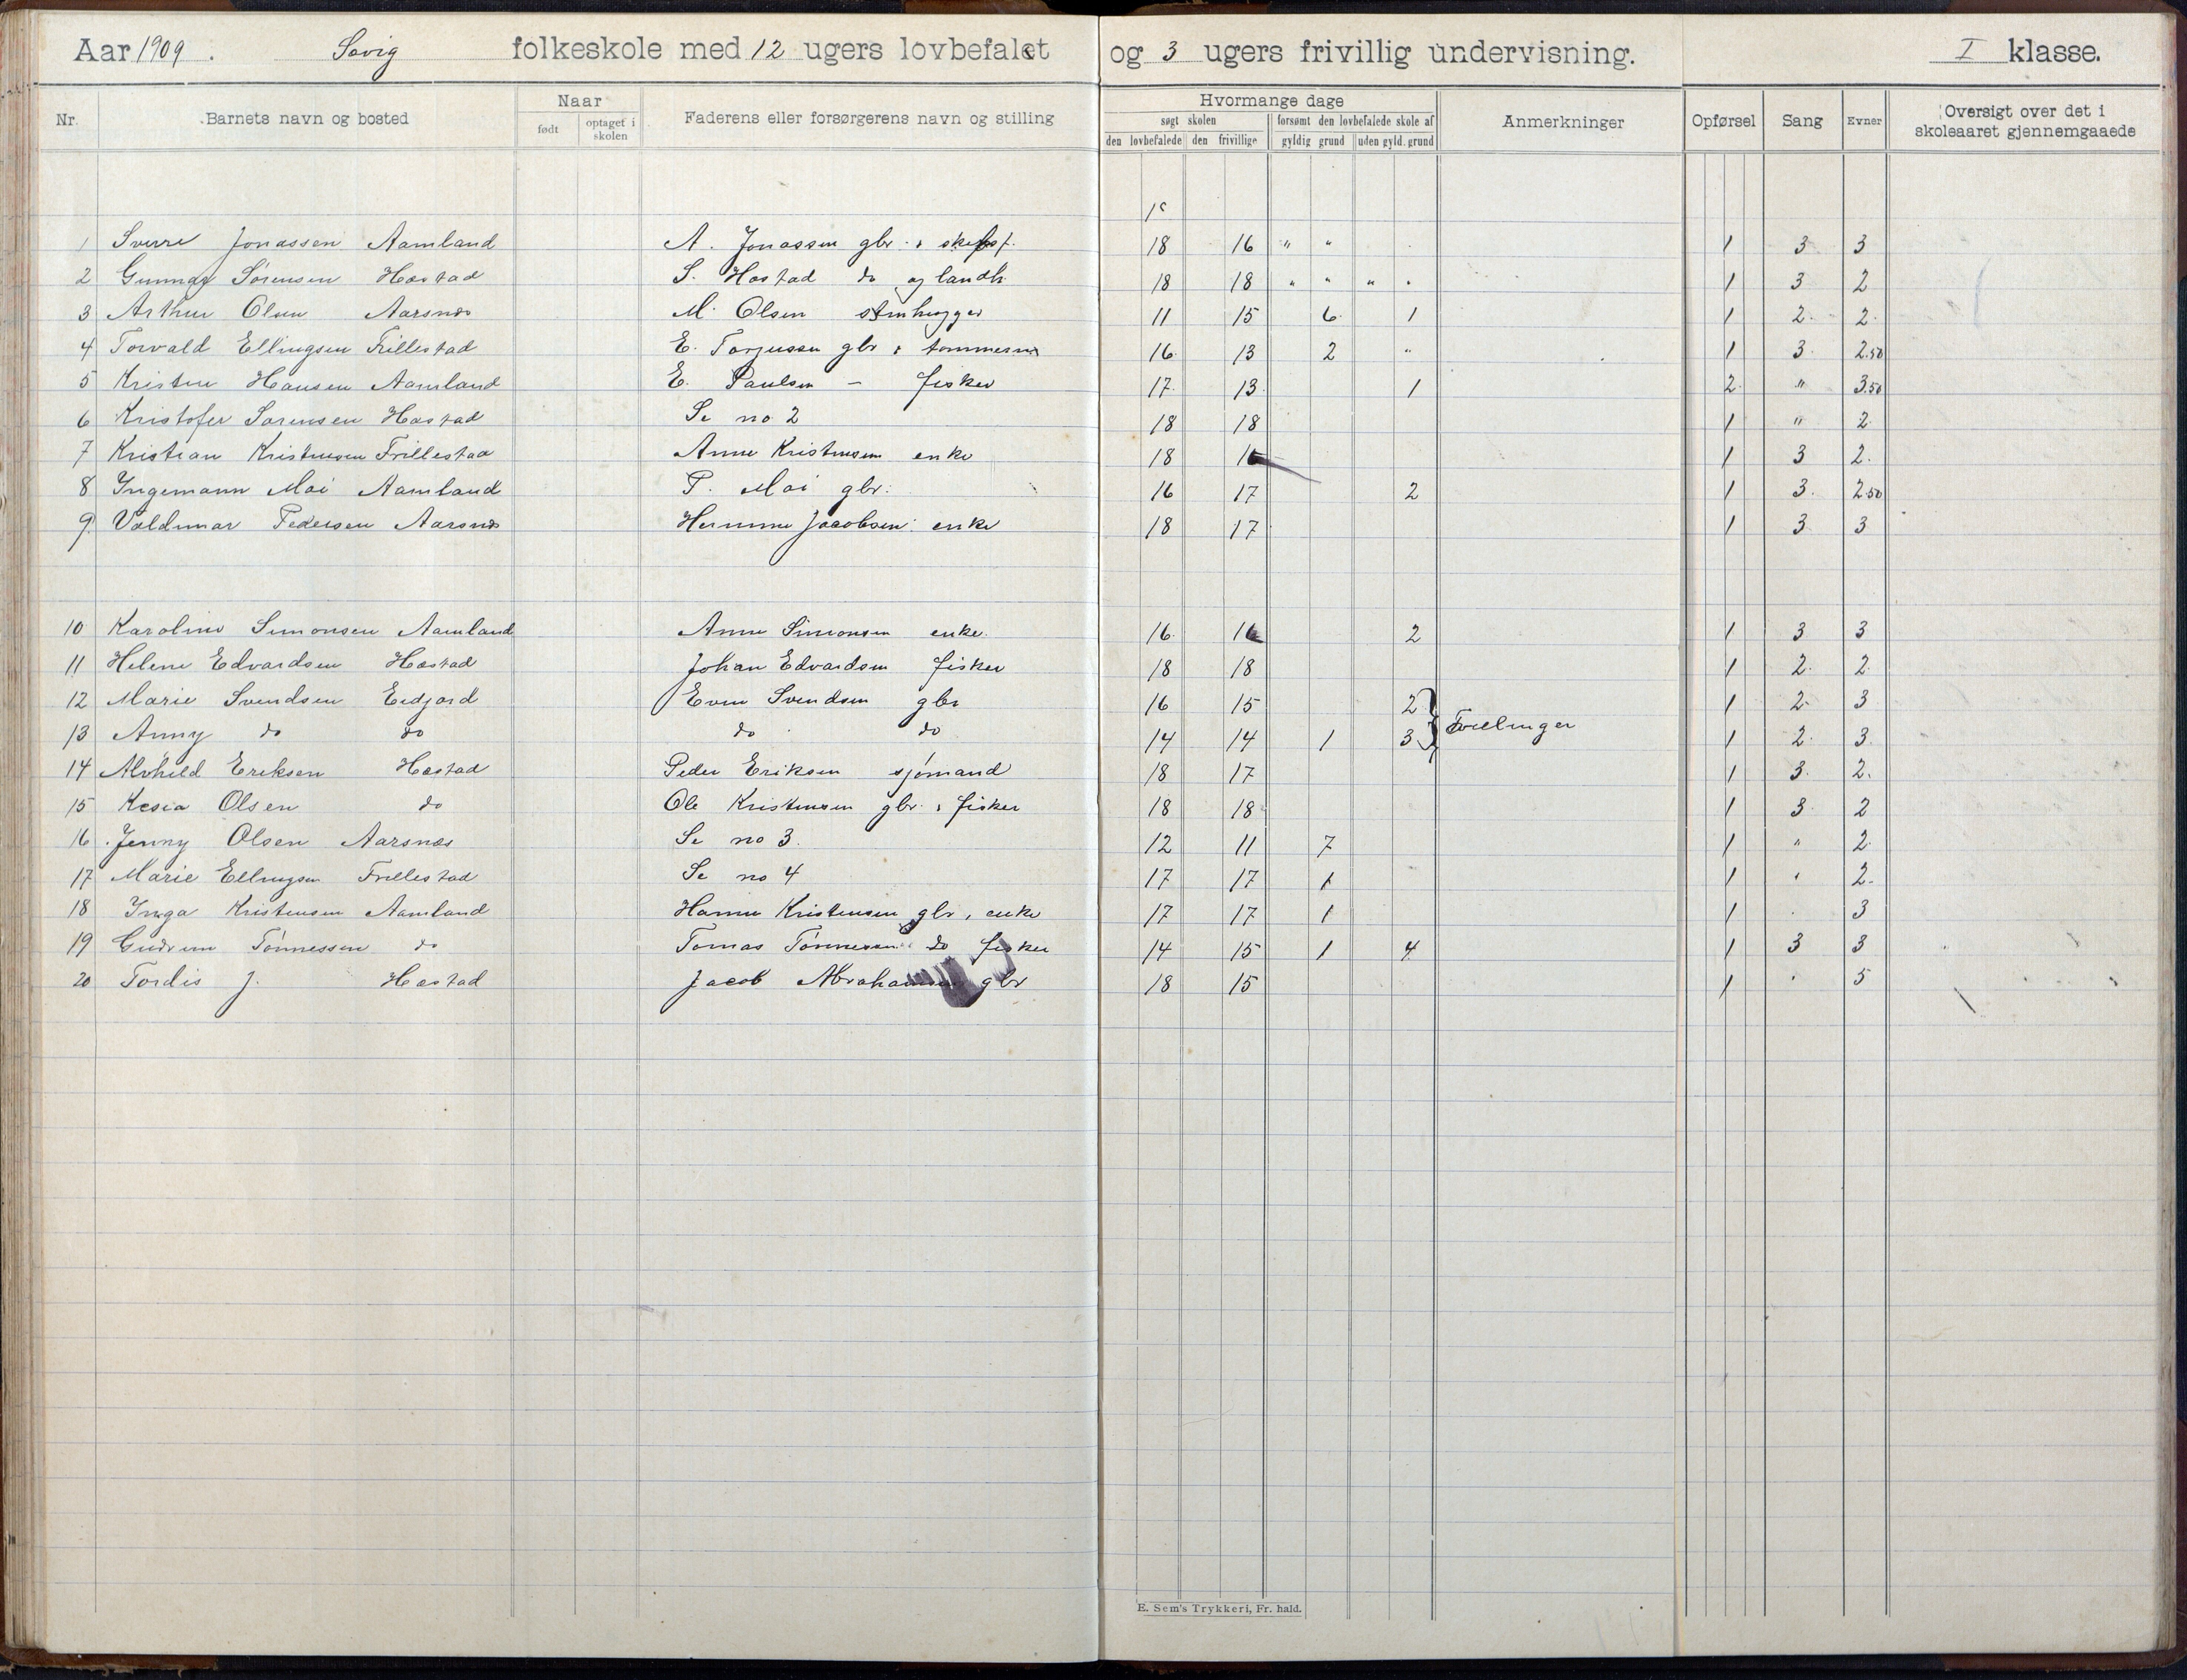 Aar 1909. Søvig folkeskole med 12 ugers lovbefalet og 3 ugers frivillig undervisning. I klasse.
Nr. Barnets navn og bosted Naar født optaget i skolen Faderens eller forsørgerens navn og stilling Hvormange dage søgt skolen den lovbefalede den frivillige forsømt den lovbefalede skole af gyldig grund uden gyld. grund Anmerkninger Opførsel Sang Evner Oversigt over det i skoleaaret gjennemgaaede
1 Sverre Jonassen Aamland A. Jonassen gbr. 18 16 " " 1 3 3
2 Gunnar Sørensen Hæstad S. Hæstad do og landh 18 18 " " " " 1 3 2
3 Arthur Olsen Aarsnes M. Olsen stenhugger 11 15 6 1 1 2 2
4 Torvald Ellingsen Frillestad E. Torjussen gbr & tømmerm 16 13 2 " 1 3 2.50
5 Kristen Hansen Aamland E. Paulsen — fisker 17 13 1 2 " 3.50
6 Kristofer Sørensen Hæstad Se no 2 18 18 1 " 2
7 Kristian Kristensen Frillestad Anne Kristensen enke 18 1 3 2.
8 Ingemann Moi Aamland P. Moi gbr. 16 17 2 1 3. 2.50
9. Valdemar Pedersen Aarsnes Jacobsen enke 18 17 1 3 3
10 Karoline Simonsen Aamland Anne Simonsen enke. 16 16 2 1 3 3
11 Helene Edvardsen Hæstad Johan Edvardsen fisker 18 18 1 2. 2.
12 Marie Svendsen Eidjord Even Svendsen gbr 16 15 2 } Tvillinger 1 2. 3
13 Anny do do do do 14 14 1 3 1 2. 3
14 Alvhild Eriksen Hæstad Peder Eriksen sjømand 18 17 1 3. 2.
15 Kesia Olsen do Ole Kristensen gbr. & fisker 18 18 1 3. 2
16 Jenny Olsen Aarsnes Se no 3. 12 11 7 1 " 2.
17 Marie Ellingsen Frillestad Se no 4 17 17 1 1 " 2.
18 Inga Kristensen Aamland Hanne Kristensen gbr, enke 17 17 1 1 . 3
19 Gudrun Tønnessen do Tomas Tønnessen do fisker 14 15 1 4 1 3 3
20 Tordis J. Hæstad Jacob Abrahamsen gbr 18 15 1 " 5
E. Sem's Trykkeri, Fr. hald.